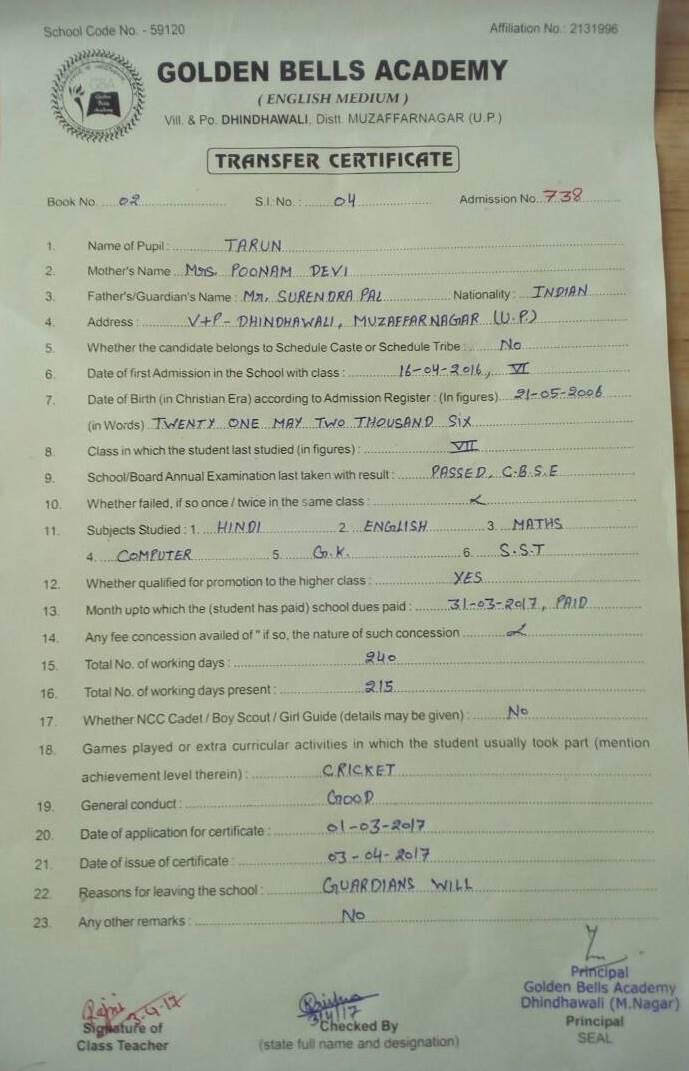 School Code No. - 59120 Affiliation No.: 2131996
GOLDEN BELLS ACADEMY
( ENGLISH MEDIUM )
Vill. & Po. DHINDHAWALI, Distt. MUZAFFARNAGAR (U.P.)
TRANSFER CERTIFICATE
Book No. 02 S.I. No. : 04 Admission No. 738
1. Name of Pupil : TARUN
2. Mother's Name Mrs. POONAM DEVI
3. Father's/Guardian's Name : Mr. SURENDRA PAL Nationality : INDIAN
4. Address : V+P- DHINDHAWALI, MUZAFFARNAGAR (U.P.)
5. Whether the candidate belongs to Schedule Caste or Schedule Tribe : No
6. Date of first Admission in the School with class : 16-04-2016, VI
7. Date of Birth (in Christian Era) according to Admission Register : (In figures) 21-05-2006
(in Words) TWENTY ONE MAY TWO THOUSAND SIX
8. Class in which the student last studied (in figures) : VII
9. School/Board Annual Examination last taken with result : PASSED, C.B.S.E
10. Whether failed, if so once / twice in the same class :
11. Subjects Studied : 1. HINDI 2. ENGLISH 3. MATHS
4. COMPUTER 5. G.K. 6. S.S.T
12. Whether qualified for promotion to the higher class : YES
13. Month upto which the (student has paid) school dues paid : 31-03-2017, PAID
14. Any fee concession availed of " if so, the nature of such concession
15. Total No. of working days : 240
16. Total No. of working days present : 215
17. Whether NCC Cadet / Boy Scout / Girl Guide (details may be given) : No
18. Games played or extra curricular activities in which the student usually took part (mention
achievement level therein) : CRICKET
19. General conduct : GOOD
20. Date of application for certificate : 01-03-2017
21. Date of issue of certificate : 03-04-2017
22. Reasons for leaving the school : GUARDIANS WILL
23. Any other remarks : No
Principal
Golden Bells Academy
Dhindhawali (M.Nagar)
Rajni 3-4-17
Signature of
Class Teacher
3/4/17
Checked By
(state full name and designation)
Principal
SEAL